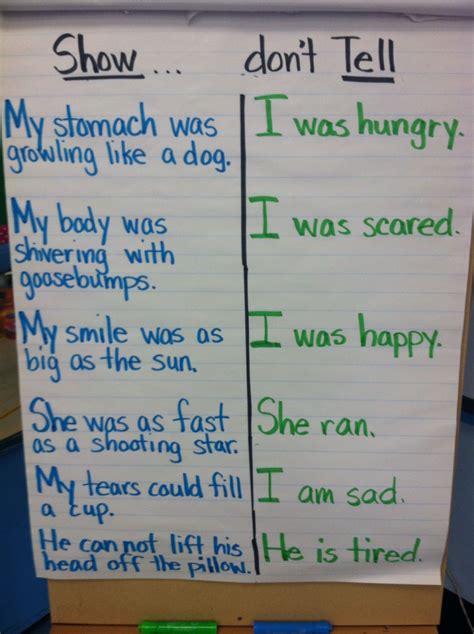 Show... don't Tell
My stomach was
growling like a dog.
I was hungry.
My body was
shivering with
goosebumps.
I was scared.
My smile was as
big as the sun.
I was happy.
She was as fast
as a shooting star.
She ran.
My tears could fill
a cup.
I am sad.
He can not lift his
head off the pillow.
He is tired.